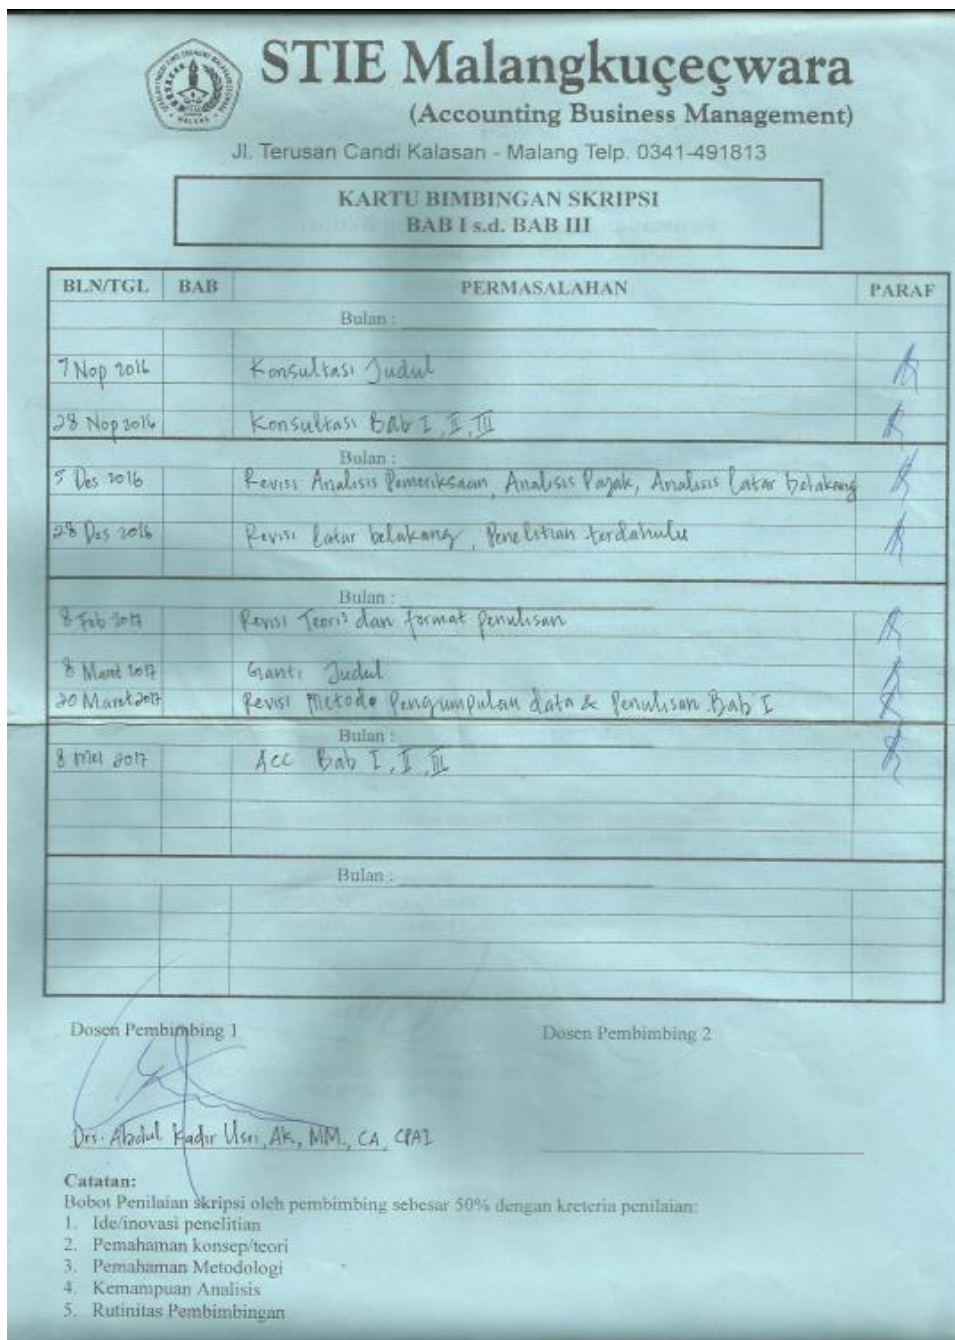 STIE Malangkuçeçwara
(Accounting Business Management)
Jl. Terusan Candi Kalasan - Malang Telp. 0341-491813
KARTU BIMBINGAN SKRIPSI
BAB I s.d. BAB III
BLN/TGL BAB PERMASALAHAN PARAF
Bulan :
7 Nop 2016 Konsultasi Judul
28 Nop 2016 Konsultasi Bab I, II, III
Bulan :
5 Des 2016 Revisi Analisis Pemeriksaan, Analisis Pajak, Analisis latar belakang
28 Des 2016 Revisi latar belakang, Penelitian terdahulu
Bulan :
8 Feb 2017 Revisi Teoris dan format penulisan
8 Maret 2017 Ganti Judul
20 Maret 2017 Revisi Metode Pengumpulan data & Penulisan Bab I
Bulan :
8 Mei 2017 Acc Bab I, II, III
Bulan :
Dosen Pembimbing 1 Dosen Pembimbing 2
Drs. Abdul Kadir Usri, AK, MM., CA, CPAI
Catatan:
Bobot Penilaian skripsi oleh pembimbing sebesar 50% dengan kreteria penilaian:
1. Ide/inovasi penelitian
2. Pemahaman konsep/teori
3. Pemahaman Metodologi
4. Kemampuan Analisis
5. Rutinitas Pembimbingan